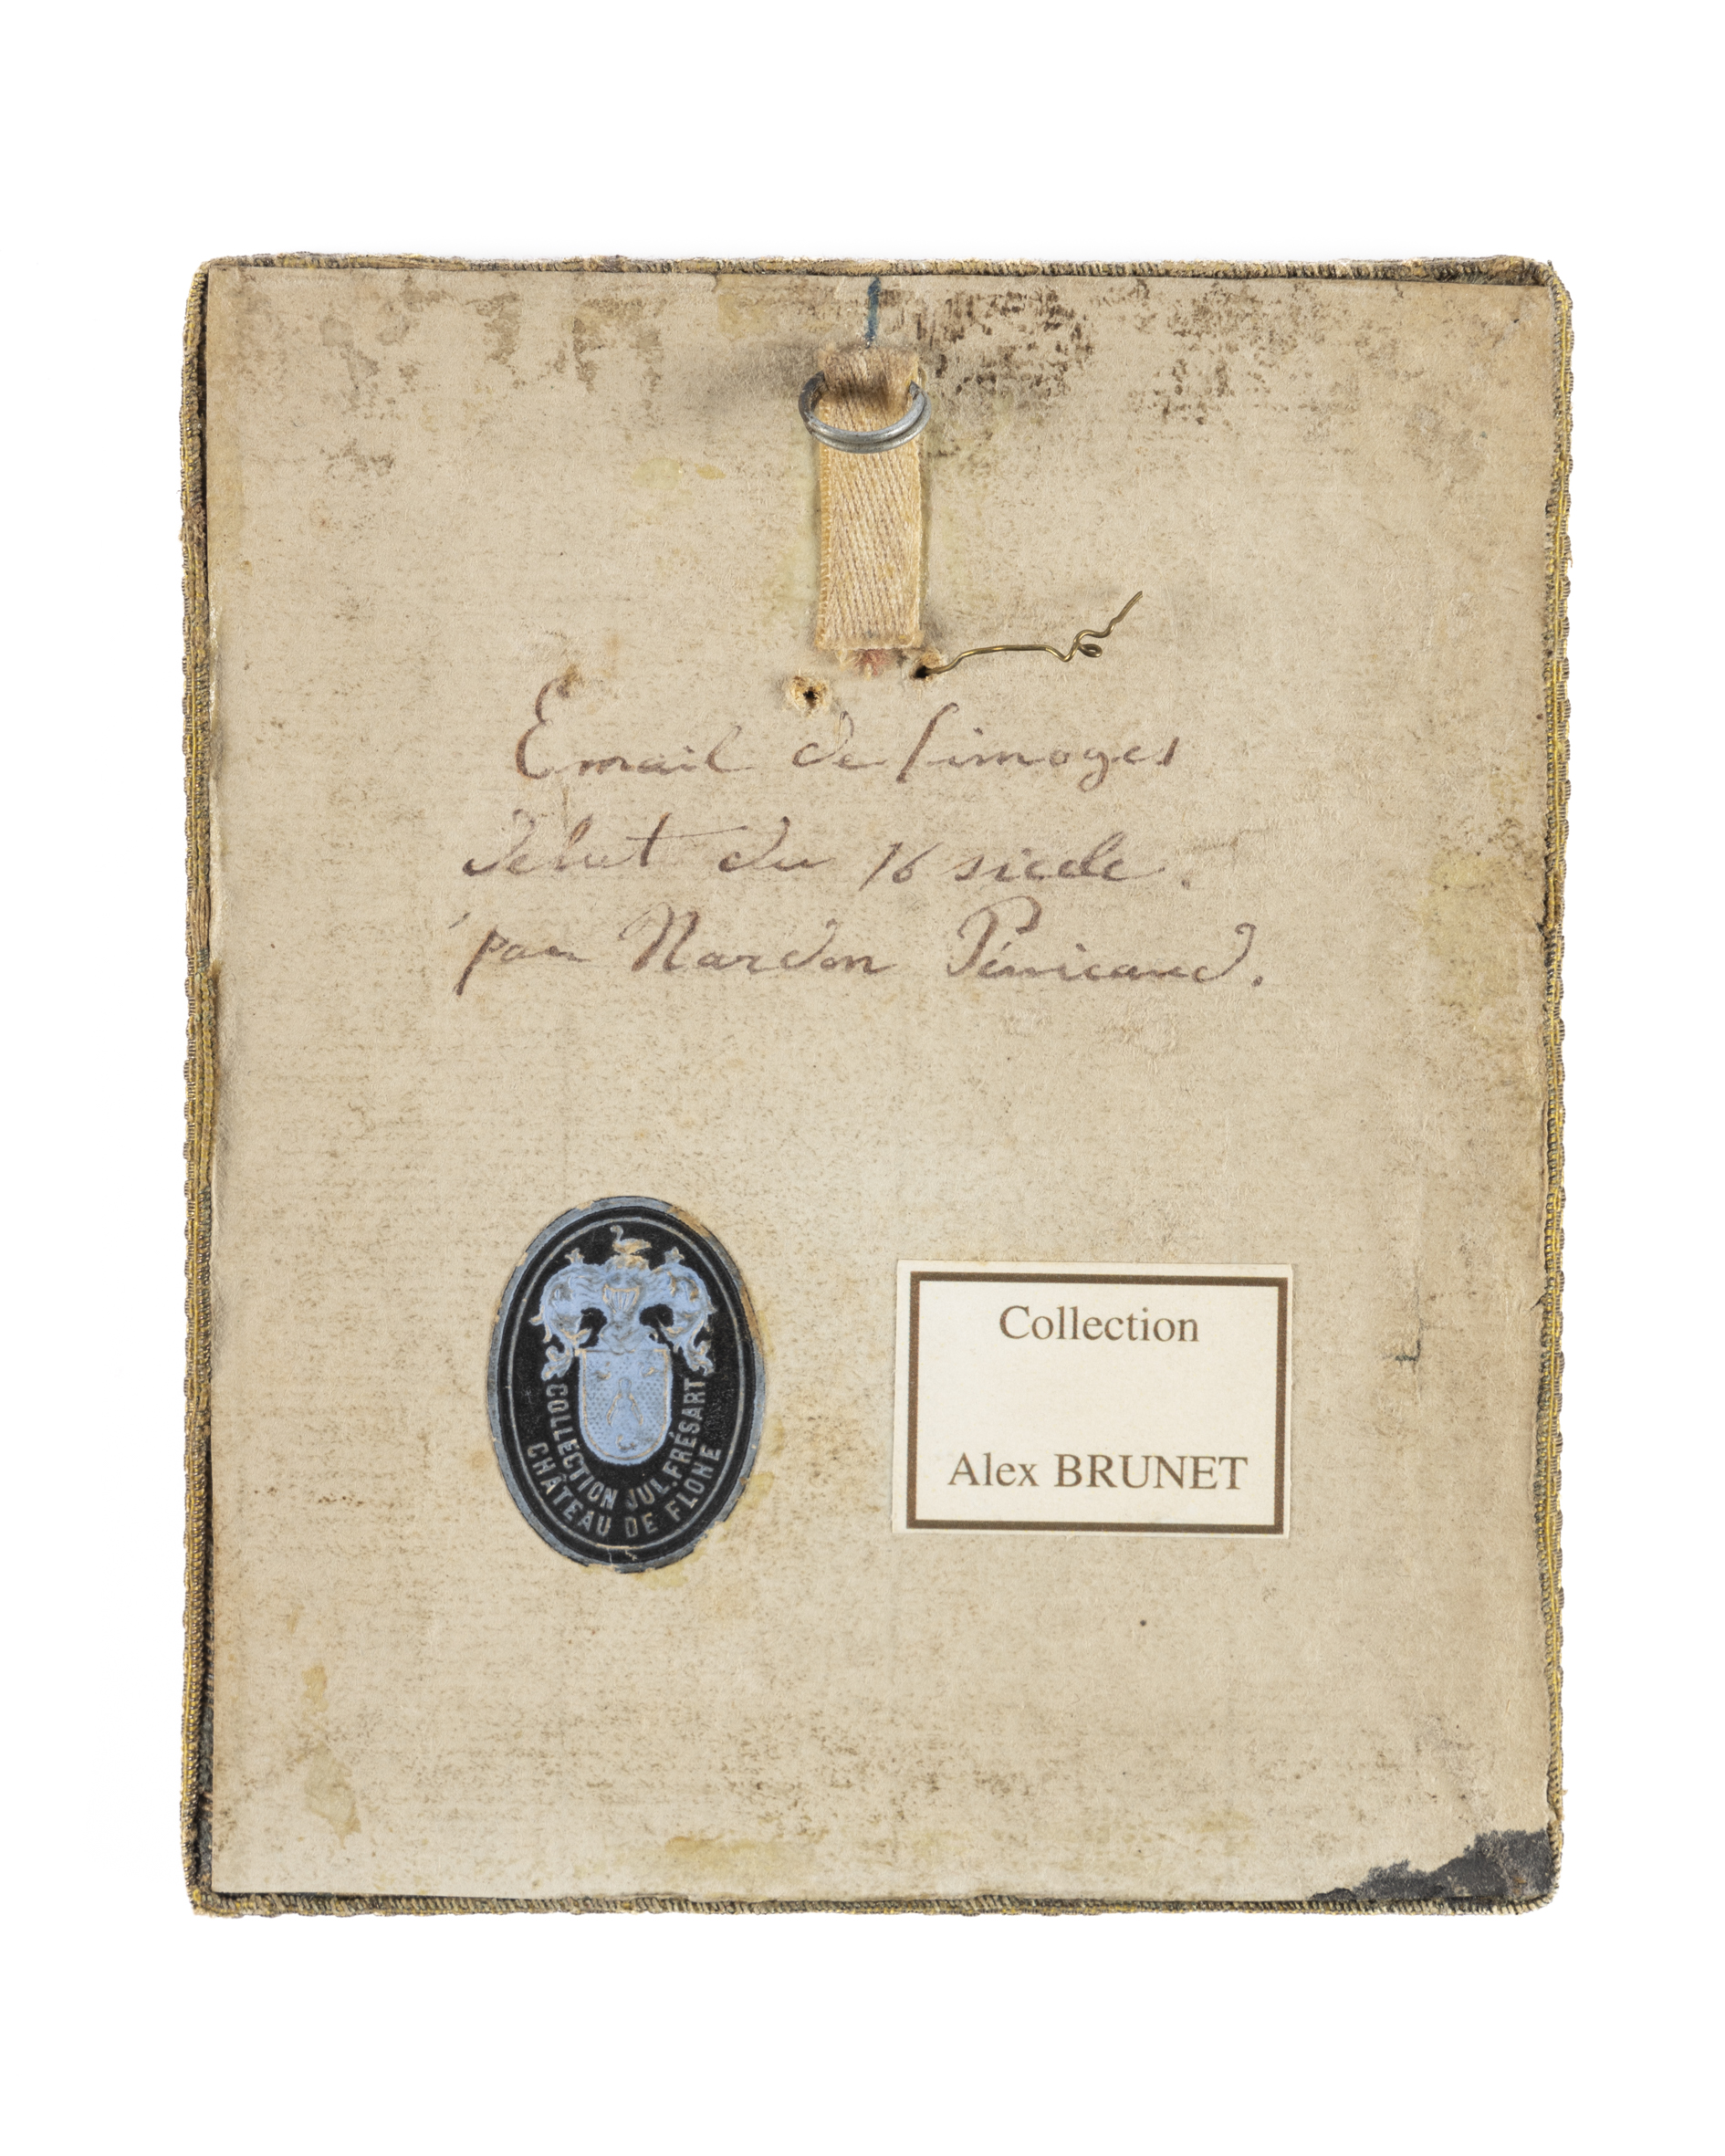 Email de limoges
debut du 16 siecle.
par Nardon Pénicaud.
COLLECTION JUL. FRÉSART
CHÂTEAU DE FLONE
Collection
Alex BRUNET